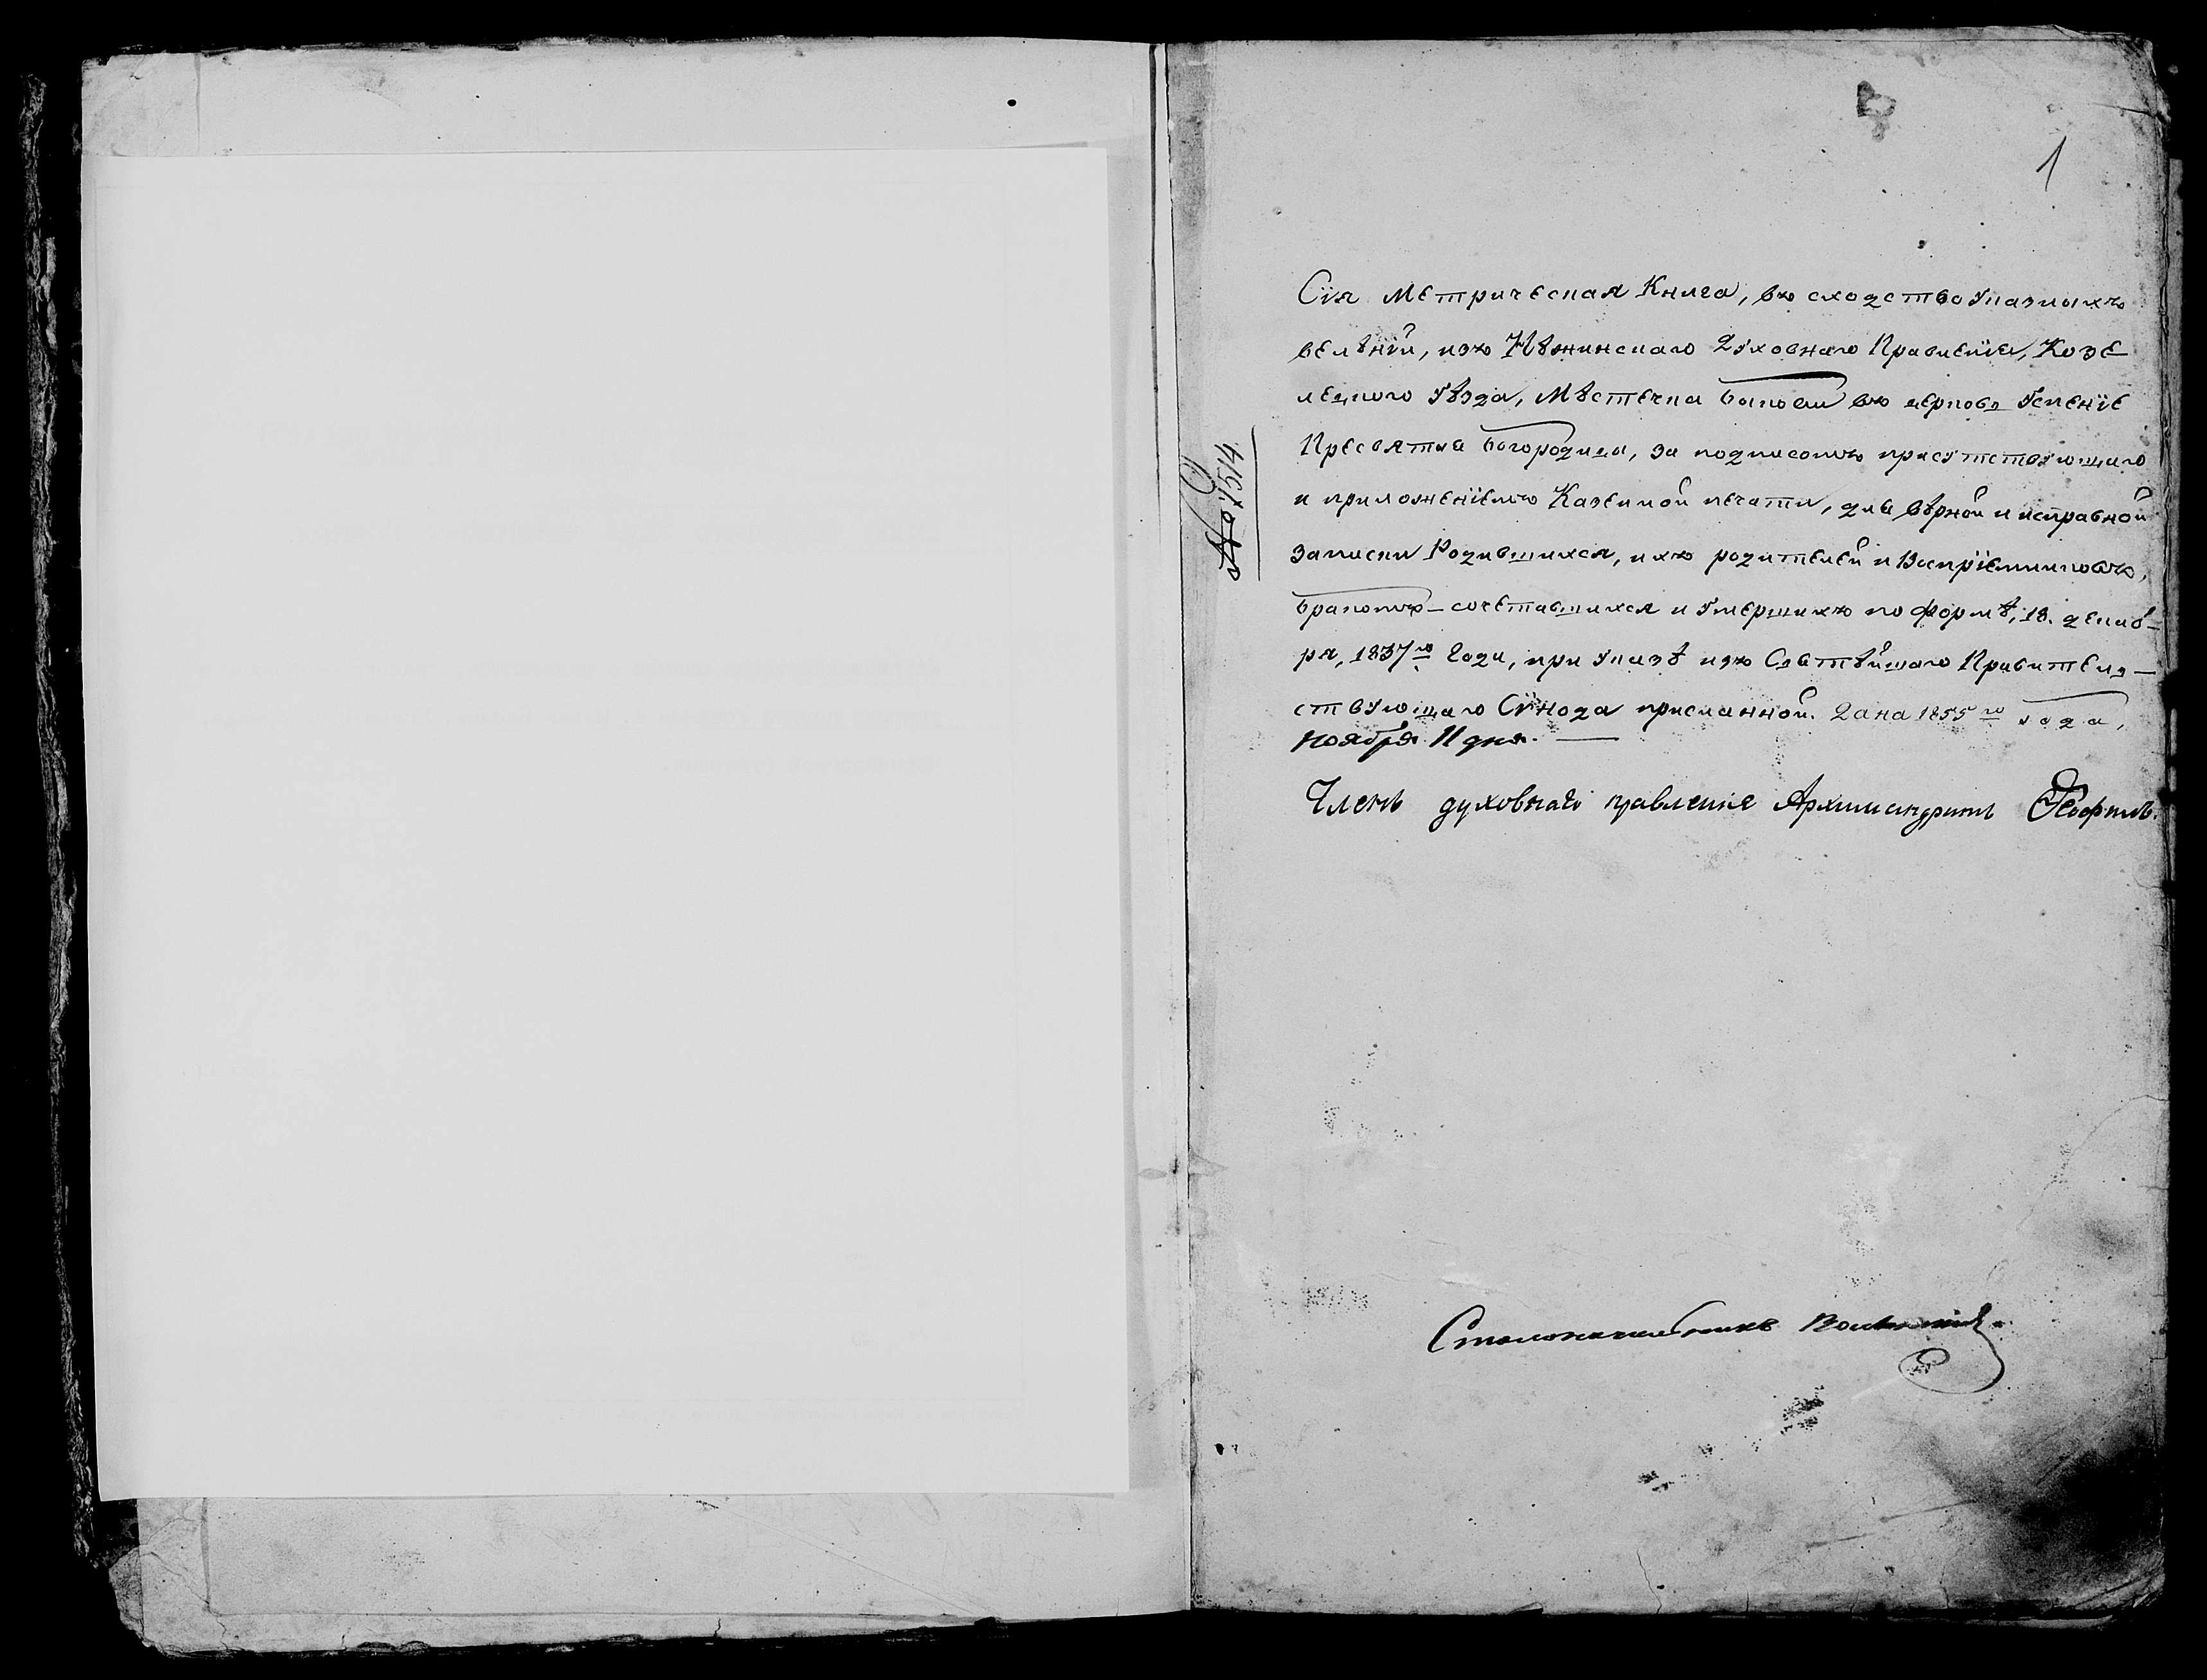 1
Сія Метрическая Книга, въ сходство Указныхъ
велѣній, изъ Нѣжинскаго Духовнаго Правленія, Козе
лецкого Уѣзда, Мѣстечка въ церковь Успенія
Пресвятыя Богородицы, за подписомъ присутствующаго
и приложеніемъ Казенной печати, для вѣрной и исправной
записки Родившихся, ихъ родителей и Воспріемниковъ,
бракомъ-сочетавшихся и Умершихъ по формѣ, 18. декаб-
ря, 1837го Года, при Указѣ изъ Святѣйшаго Правитель-
ствующаго Сѵнода присланной. Дана 1855го года,
Ноября 11 дня.
№ 1514
Членъ духовнаго правленія Архимандритъ
Столоначальникъ